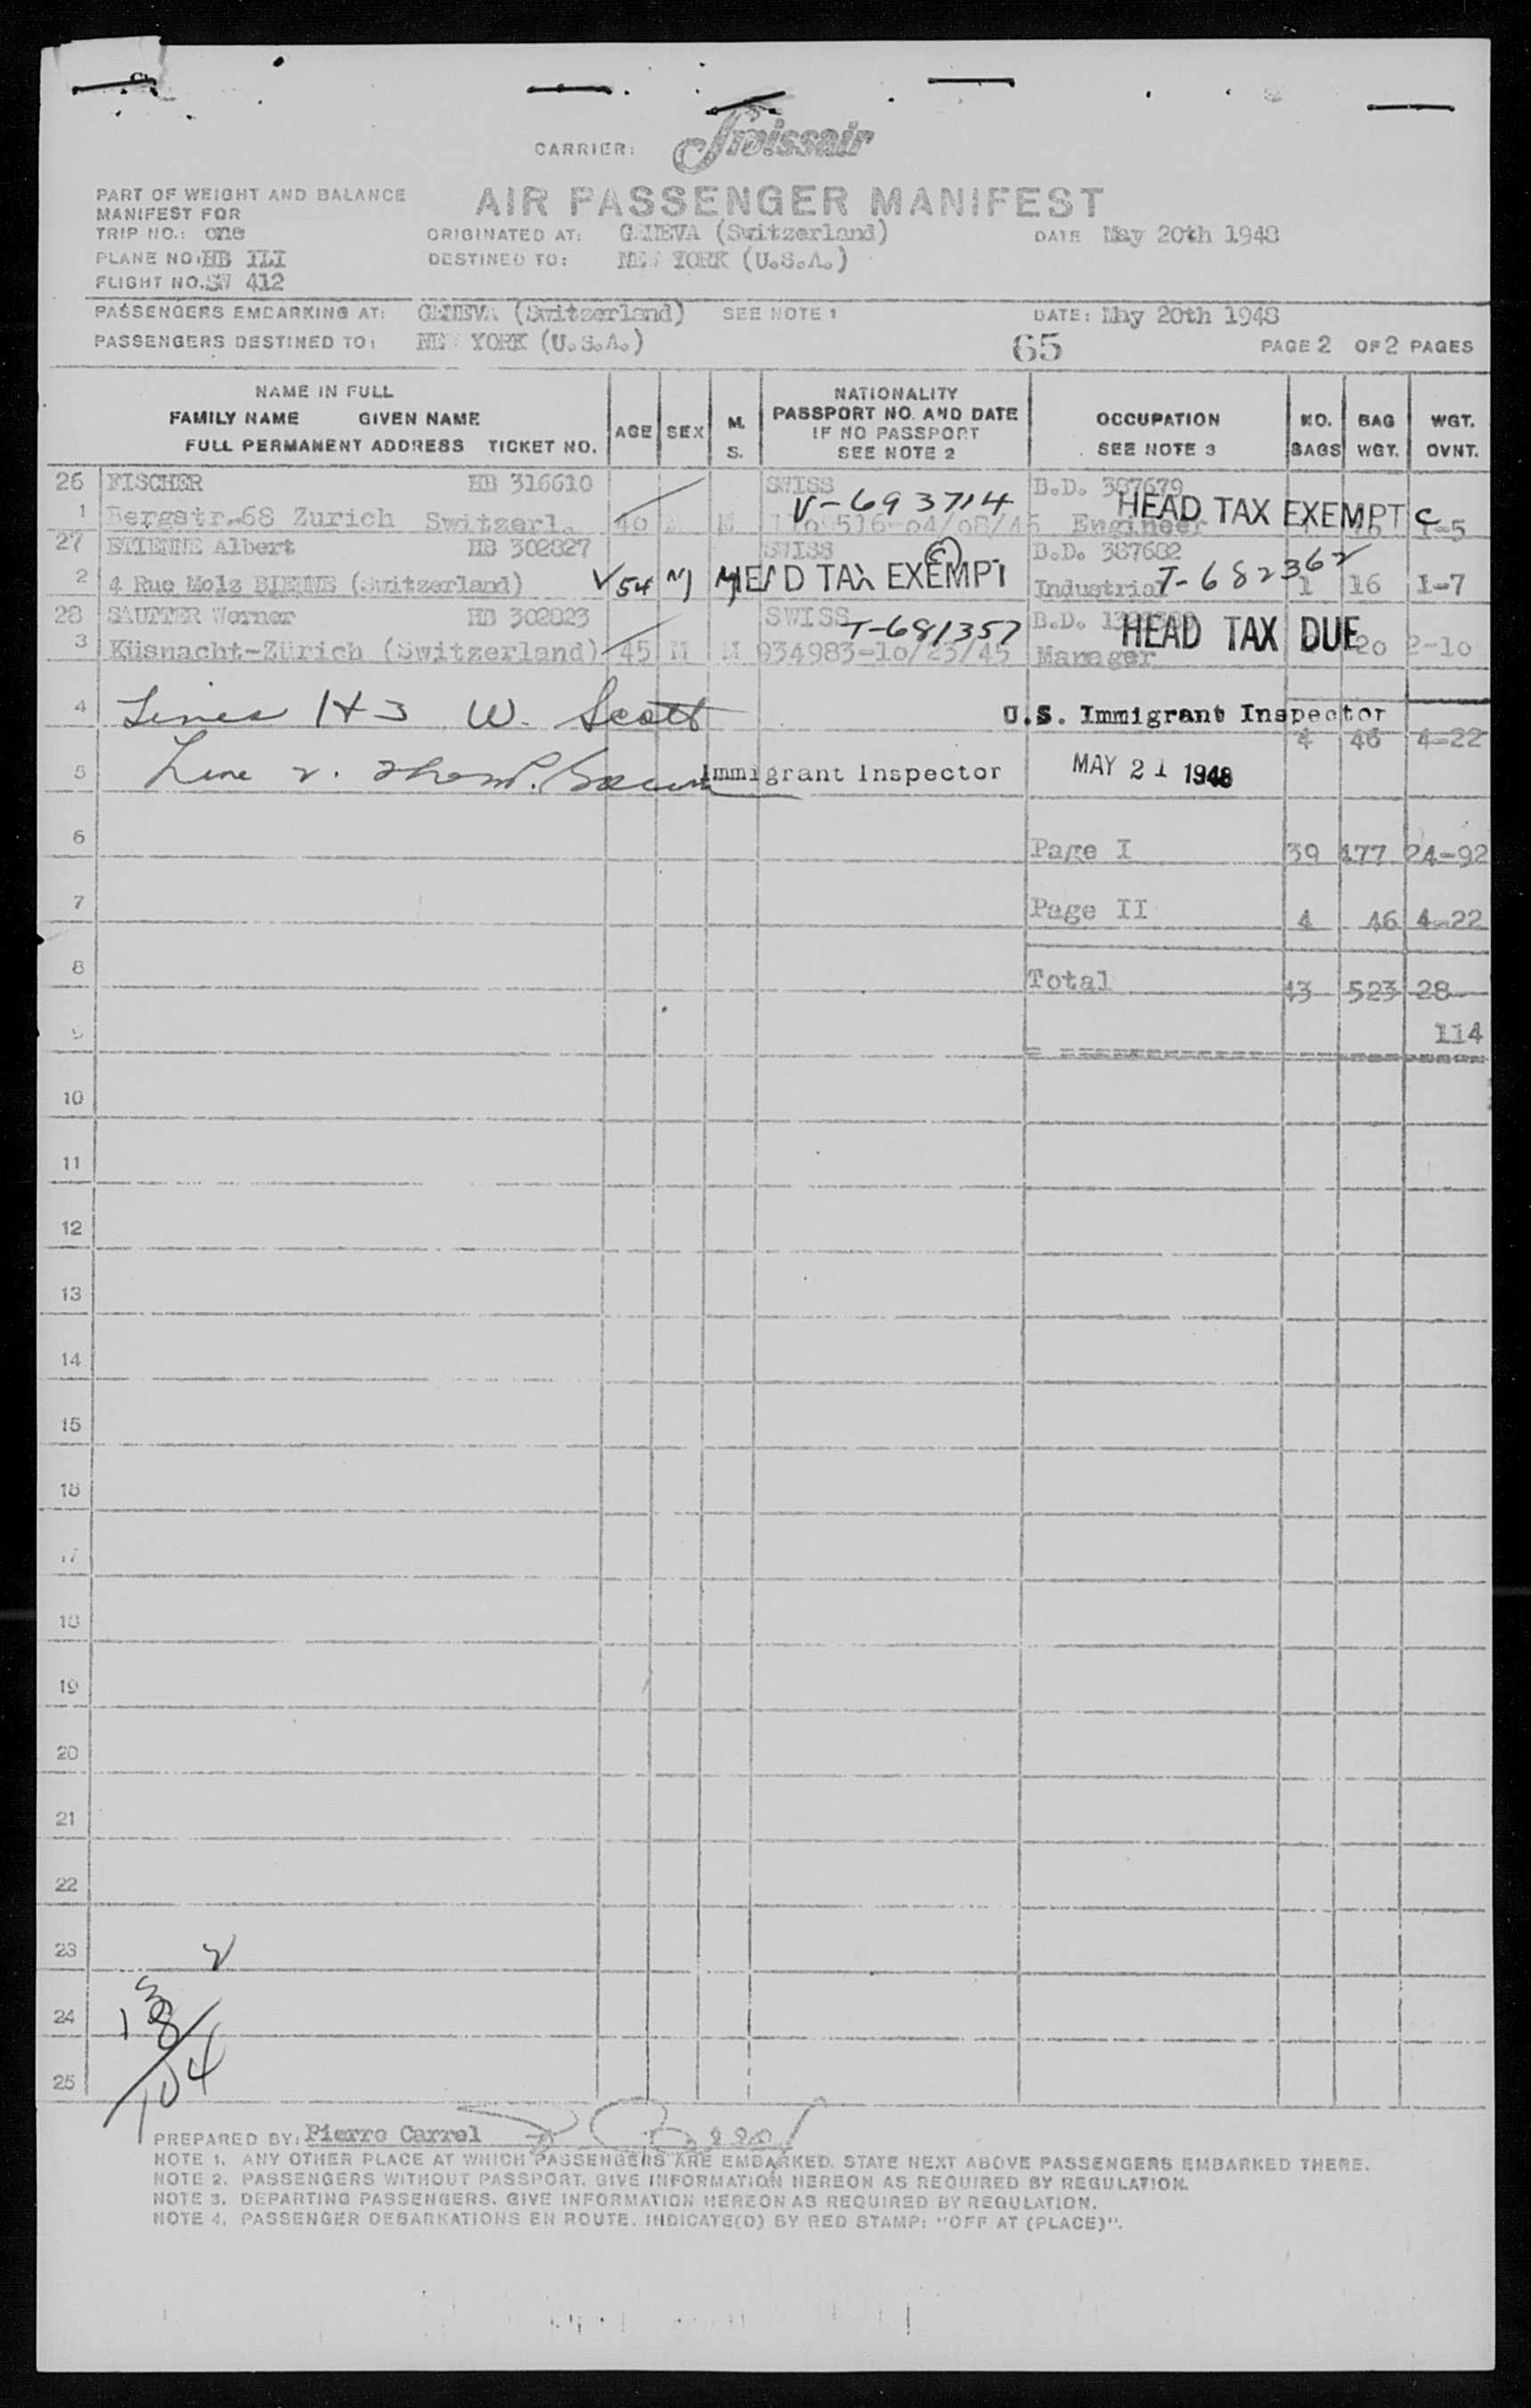 CARRIER: Swissair
PART OF WEIGHT AND BALANCE
MANIFEST FOR
AIR PASSENGER MANIFEST
TRIP NO.: one
ORIGINATED AT: GENEVA (Switzerland)
DATE May 20th 1948
PLANE NO: HB ILI
DESTINED TO: NEW YORK (U.S.A.)
FLIGHT NO. SW 412
PASSENGERS EMBARKING AT: GENEVA (Switzerland) SEE NOTE 1
DATE: May 20th 1948
PASSENGERS DESTINED TO: NEW YORK (U.S.A.)
65
PAGE 2 OF 2 PAGES
NAME IN FULL
FAMILY NAME GIVEN NAME
FULL PERMANENT ADDRESS TICKET NO.
AGE
SEX
M.
S.
NATIONALITY
PASSPORT NO. AND DATE
IF NO PASSPORT
SEE NOTE 2
OCCUPATION
SEE NOTE 3
NO.
BAGS
BAG
WGT.
WGT.
OVNT.
26 FISCHER HB 316610 SWISS B.D. 387679
V-693714 HEAD TAX EXEMPT C
1 Bergstr.68 Zurich Switzerl. 40 M M Engineer 1-5
27 ETIENNE Albert HB 302827 SWISS B.D. 387682
2 4 Rue Molz BIENNE (Switzerland) 54 M M HEAD TAX EXEMPT Industrial T-682362 1 16 1-7
28 SAUTTER Werner HB 302823 SWISS T-681357 B.D.
HEAD TAX DUE
3 Küsnacht-Zürich (Switzerland) 45 M M 934983-10/23/45 Manager 20 2-10
4 Lines 1+3 W. Scott U.S. Immigrant Inspector
4 46 4-22
5 Line 2. Immigrant Inspector MAY 21 1948
6 Page I 39 477 24-92
7 Page II 4 46 4-22
8 Total 43 523 28-
9 114
10
11
12
13
14
15
16
17
18
19
20
21
22
23 2
3
24 18
104
25
PREPARED BY: Pierre Carrel
NOTE 1. ANY OTHER PLACE AT WHICH PASSENGERS ARE EMBARKED. STATE NEXT ABOVE PASSENGERS EMBARKED THERE.
NOTE 2. PASSENGERS WITHOUT PASSPORT. GIVE INFORMATION HEREON AS REQUIRED BY REGULATION.
NOTE 3. DEPARTING PASSENGERS. GIVE INFORMATION HEREON AS REQUIRED BY REGULATION.
NOTE 4. PASSENGER DEBARKATIONS EN ROUTE. INDICATE(D) BY RED STAMP: "OFF AT (PLACE)".